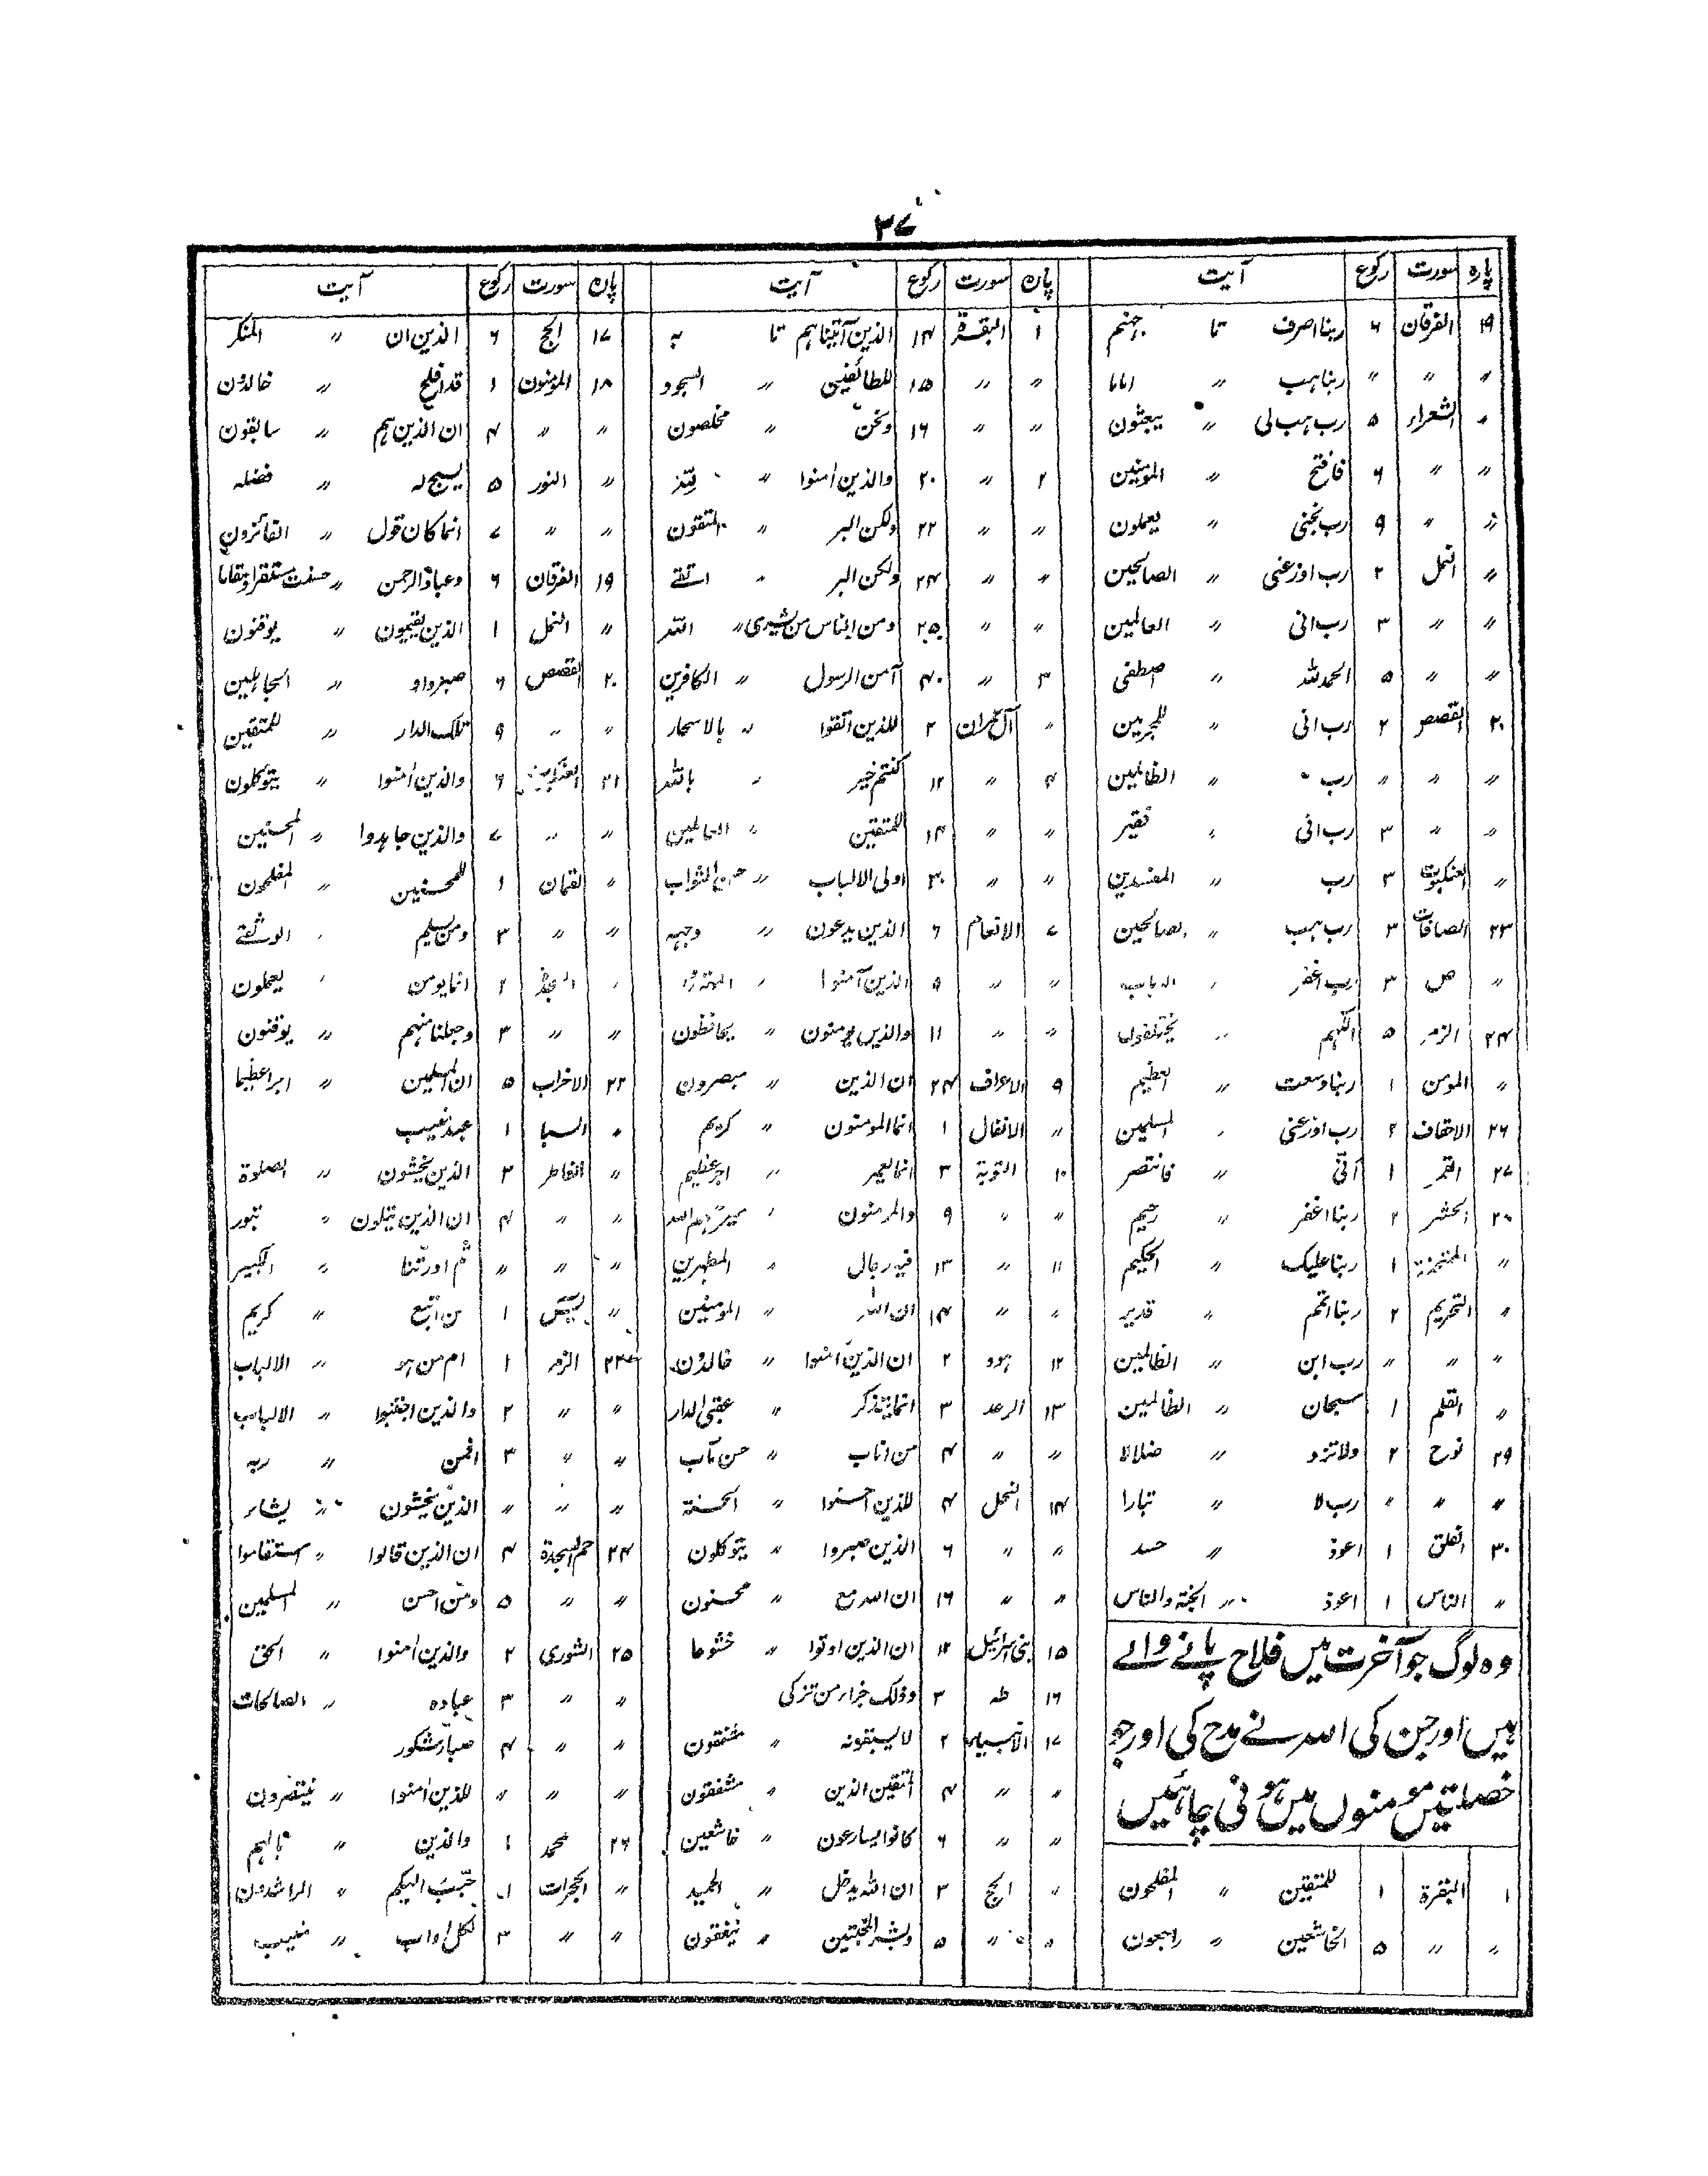 ۳۷
پارہ سورت رکوع آیت
۱۹ الفرقان ۶ ربنا اصرف تا جہنم
〃 〃 〃 ربنا ہب 〃 اماما
〃 الشعراء ۵ رب ہب لی 〃 یبعثون
〃 〃 ۶ فافتح 〃 المومنین
〃 〃 ۹ رب نجنی 〃 یعملون
〃 النمل ۲ رب اوزعنی 〃 الصالحین
〃 〃 ۳ رب انی 〃 العالمین
〃 〃 ۵ الحمدللہ 〃 اصطفی
۲۰ القصص ۲ رب انی 〃 للمجرمین
〃 〃 〃 رب 〃 الظالمین
〃 〃 ۳ رب انی 〃 فقیر
〃 العنکبوت ۳ رب 〃 المفسدین
۲۳ الصافات ۳ رب ہب 〃 الصالحین
〃 ص ۳ رب اغفر 〃
۲۴ الزمر ۵ اللّٰہم 〃 یختلفون
〃 المومن ۱ ربنا وسعت 〃 العظیم
۲۶ الاحقاف ۲ رب اوزعنی 〃 المسلمین
۲۷ القمر ۱ انّی 〃 فانتصر
۲۸ الحشر ۲ ربنا اغفر 〃 رحیم
〃 الممتحنۃ ۱ ربنا علیک 〃 الحکیم
〃 التحریم ۲ ربنا اتمم 〃 قدیر
〃 〃 〃 رب ابن 〃 الظالمین
〃 القلم ۱ سبحان 〃 الظالمین
۲۹ نوح ۲ ولا تزد 〃 ضلالا
〃 〃 〃 رب لا 〃 تبارا
۳۰ الفلق ۱ اعوذ 〃 حسد
〃 الناس ۱ اعوذ 〃 الجنۃ والناس
وہ لوگ جو آخرت میں فلاح پانے والے
ہیں اور جن کی اللہ نے مدح کی اور جو
خصلتیں مومنوں میں ہونی چاہئیں
۱ البقرۃ ۱ للمتقین 〃 المفلحون
〃 〃 ۵ الخاشعین 〃 راجعون
پارہ سورت رکوع آیت
۱ البقرۃ ۱۴ الذین آتیناہم تا بہ
〃 〃 ۱۵ للطائفین 〃 السجود
〃 〃 ۱۶ ونحن 〃 مخلصون
۲ 〃 ۲۰ والذین اٰمنوا 〃 للہ
〃 〃 ۲۲ ولکن البر 〃 المتقون
〃 〃 ۲۴ ولکن البر 〃 اتقے
〃 〃 ۲۵ ومن الناس من یشری 〃 اللہ
۳ 〃 ۴۰ آمن الرسول 〃 الکافرین
〃 آل عمران ۲ للذین اتقوا 〃 بالاسحار
۴ 〃 ۱۲ کنتم خیر 〃 باللہ
〃 〃 ۱۴ للمتقین 〃 العالمین
〃 〃 ۲۰ اولی الالباب 〃 حسن الثواب
۷ الانعام ۶ الذین یدعون 〃 وجہہ
〃 〃 ۹ الذین آمنوا 〃
〃 〃 ۱۱ والذین یومنون 〃 یحافظون
۹ الاعراف ۲۴ ان الذین 〃 مبصرون
〃 الانفال ۱ انما المومنون 〃 کریم
۱۰ التوبۃ ۳ انما یعمر 〃 اجر عظیم
〃 〃 ۹ والمومنون 〃 سیرحمہم اللہ
۱۱ 〃 ۱۳ فیہ رجال 〃 المطہرین
〃 〃 ۱۴ ان اللہ 〃 المومنین
۱۲ ہود ۲ ان الذین اٰمنوا 〃 خالدون
۱۳ الرعد ۳ انما یتذکر 〃 عقبی الدار
〃 〃 ۴ من اناب 〃 حسن مآب
۱۴ النحل ۴ للذین احسنوا 〃 الحسنۃ
〃 〃 ۶ الذین صبروا 〃 یتوکلون
〃 〃 ۱۶ ان اللہ مع 〃 محسنون
۱۵ بنی اسرائیل ۱۲ ان الذین اوتوا 〃 خشوعا
۱۶ طہ ۳ وذلک جزاء من تزکی
۱۷ الانبیاء ۲ لا یسبقونہ 〃 مشفقون
〃 〃 ۴ المتقین الذین 〃 مشفقون
〃 〃 ۶ کانوا یسارعون 〃 خاشعین
〃 الحج ۳ ان اللہ یدخل 〃 الحمید
〃 〃 ۵ وبشر المخبتین 〃 ینفقون
پارہ سورت رکوع آیت
۱۷ الحج ۶ الذین ان 〃 المنکر
۱۸ المومنون ۱ قد افلح 〃 خالدون
〃 〃 ۴ ان الذین ہم 〃 سابقون
〃 النور ۵ یسبح لہ 〃 فضلہ
〃 〃 ۷ انما کان قول 〃 الفائزون
۱۹ الفرقان ۶ وعباد الرحمن 〃 حسنت مستقرا ومقاما
〃 النمل ۱ الذین یقیمون 〃 یوقنون
۲۰ القصص ۶ صبروا و 〃 الجاہلین
〃 〃 ۹ تلک الدار 〃 للمتقین
۲۱ العنکبوت ۶ والذین اٰمنوا 〃 یتوکلون
〃 〃 ۷ والذین جاہدوا 〃 المحسنین
〃 لقمان ۱ للمحسنین 〃 المفلحون
〃 〃 ۳ ومن یسلم 〃 الوثقے
〃 السجدۃ ۲ انما یومن 〃 یعملون
〃 〃 ۳ وجعلنا منہم 〃 یوقنون
۲۲ الاحزاب ۵ ان المسلمین 〃 اجرا عظیما
〃 السبا ۱ عبد منیب
〃 الفاطر ۳ الذین یخشون 〃 الصلوۃ
〃 〃 ۴ ان الذین یتلون 〃 تبور
〃 〃 〃 ثم اورثنا 〃 الکبیر
〃 یٰسٓ ۱ من اتبع 〃 کریم
۲۳ الزمر ۱ ام من ہو 〃 الالباب
〃 〃 ۲ والذین اجتنبوا 〃 الالباب
〃 〃 ۳ افمن 〃 ربہ
〃 〃 〃 الذین یخشون 〃 یشاء
۲۴ حم السجدۃ ۴ ان الذین قالوا 〃 استقاموا
〃 〃 ۵ ومن احسن 〃 المسلمین
۲۵ الشوری ۲ والذین اٰمنوا 〃 الحق
〃 〃 ۳ عبادہ 〃 الصالحات
〃 〃 ۴ صبار شکور
〃 〃 〃 للذین اٰمنوا 〃 ینتصرون
۲۶ محمد ۱ والذین 〃 بالہم
〃 الحجرات ۱ حبّب الیکم 〃 الراشدون
〃 〃 ۳ لکل اواب 〃 منیب